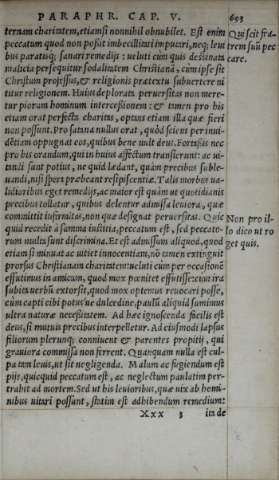 PARAPHR. CAP. V. 693
ternam charitatem, etiamsi nonnihil obnubilet. Est enim
peccatum quod non possit imbecillitati imputari, neq; leui
bus paratisq; sanari remedijs: ueluti cum quis destinata
malicia persequitur sodalitatem Christianã, cum ipse sit
Christum professus, & religionis prætextu subuertere ni
titur religionem. Huius deplorata peruersitas non mere-
tur piorum hominum intercessionem: & tamen pro his
etiam orat perfecta charitas, optans etiam illa quæ fieri
non possunt. Pro satana nullus orat, quòd sciens per inui-
dētiam oppugnat eos, quibus bene uult deus. Fortassis nec
pro his orandum, qui in huius affectum transierunt: ac ui-
tandi sunt potius, ne quid lædant, quàm precibus suble-
uandi, nisi specī præbeant resipiscentiæ. Talis morbus ua-
lidioribus eget remedijs, ac maior est quàm ut quotidianis
precibus tollatur, quibus delentur admissa leuiora, quæ
committit infirmitas, non quæ designat peruersitas. Quic
quid recedit à summa iustitia, peccatum est, sed peccato-
rum multa sunt discrimina. Et est admissum aliquod, quod
etiam si minuat ac uitiet innocentiam, nõ tamen extinguit
prorsus Christianam charitatem: ueluti cum per occasionē
effutimus in amicum, quod mox pœnitet effutisse: cum ira
subita uerbũ extorsit, quod mox optemus reuocari posse,
cum capti cibi potusue dulcedine, paulũ aliquid sumimus
ultra naturæ necessitatem. Ad hæc ignoscenda facilis est
deus, si mutuis precibus interpelletur. Ad eiusmodi lapsus
filiorum plerunq; conniuent & parentes propitij, qui
grauiora commissa non ferrent. Quanquam nulla est cul-
pa tam leuis, ut sit negligenda. Malum ac fugiendum est
pijs, quicquid peccatum est, ac neglectum paulatim per-
trahit ad mortem. Sed ut his leuioribus, quæ uix ab homi-
nibus uitari possunt, statim est adhibendum remedium:
Xxx 3 in de
Qui scit fra
trem suũ pec
care.
Non pro il-
lo dico ut ro
get quis.